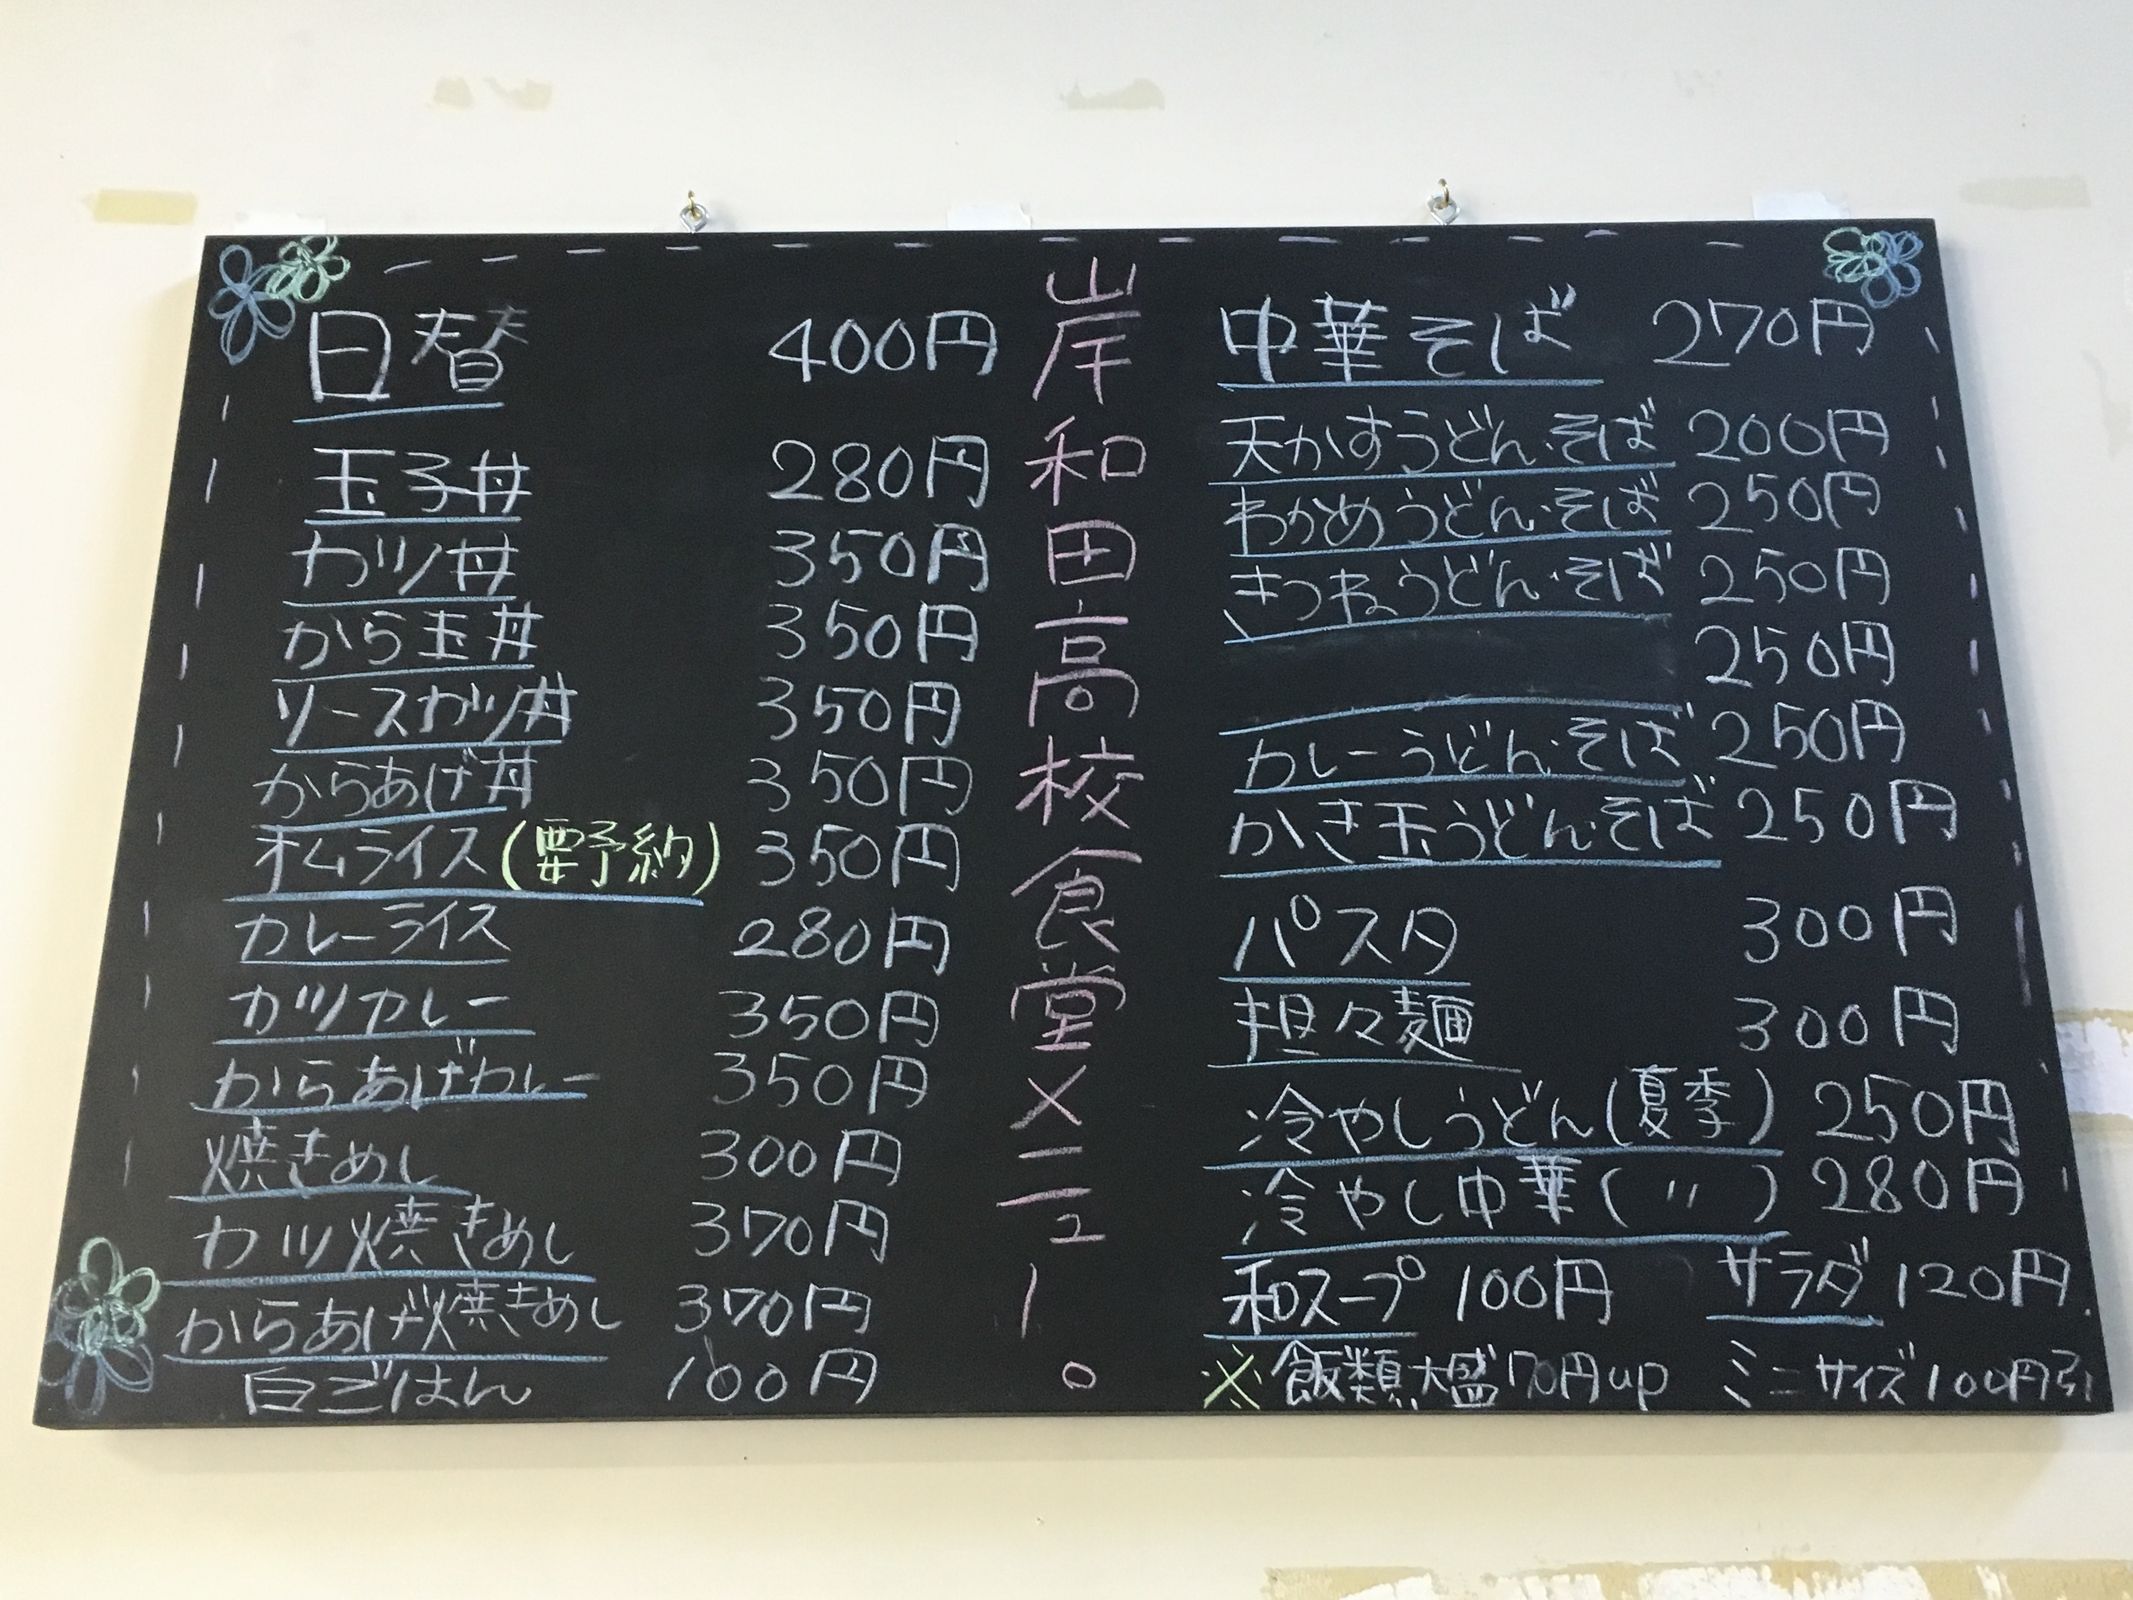 岸和田高校食堂メニュー。
日替 400円
玉子丼 280円
カツ丼 350円
から玉丼 350円
ソースカツ丼 350円
からあげ丼 350円
オムライス(要予約) 350円
カレーライス 280円
カツカレー 350円
からあげカレー 350円
焼きめし 300円
カツ焼きめし 370円
からあげ焼きめし 370円
白ごはん 100円
中華そば 270円
天かすうどん・そば 200円
わかめうどん・そば 250円
きつねうどん・そば 250円
250円
カレーうどん・そば 250円
かき玉うどん・そば 250円
パスタ 300円
担々麺 300円
冷やしうどん(夏季) 250円
冷やし中華(〃) 280円
和スープ 100円 サラダ 120円
※飯類大盛70円up ミニサイズ100円引